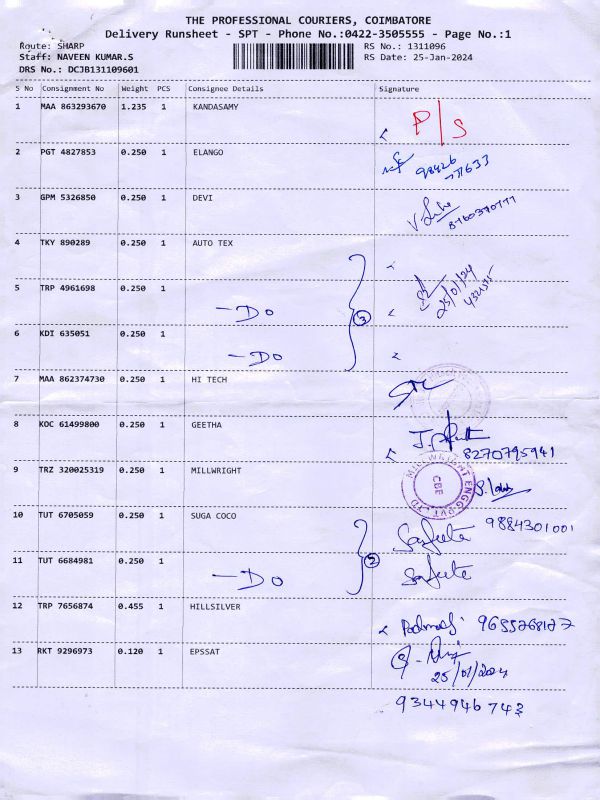 THE PROFESSIONAL COURIERS, COIMBATORE
Delivery Runsheet - SPT - Phone No.:0422-3505555 - Page No.:1
Route: SHARP
Staff: NAVEEN KUMAR.S
DRS No.: DCJB131109601
RS No.: 1311096
RS Date: 25-Jan-2024
S No Consignment No Weight PCS Consignee Details Signature
1 MAA 863293670 1.235 1 KANDASAMY P/S
2 PGT 4827853 0.250 1 ELANGO
3 GPM 5326850 0.250 1 DEVI
4 TKY 890289 0.250 1 AUTO TEX
5 TRP 4961698 0.250 1 — Do 25/01/24
6 KDI 635051 0.250 1 — Do
3
7 MAA 862374730 0.250 1 HI TECH
8 KOC 61499800 0.250 1 GEETHA 8270795941
9 TRZ 320025319 0.250 1 MILLWRIGHT
MILLWRIGHT ENGG PVT. LTD
CBE
10 TUT 6705059 0.250 1 SUGA COCO 9884301001
11 TUT 6684981 0.250 1 — Do
2
12 TRP 7656874 0.455 1 HILLSILVER
13 RKT 9296973 0.120 1 EPSSAT
25/01/2024
9344946743